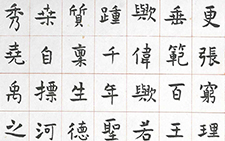 更張窮理
垂範百王
歟偉歟若
踵千年聖
質稟生德
朶自摽河
秀堯禹之